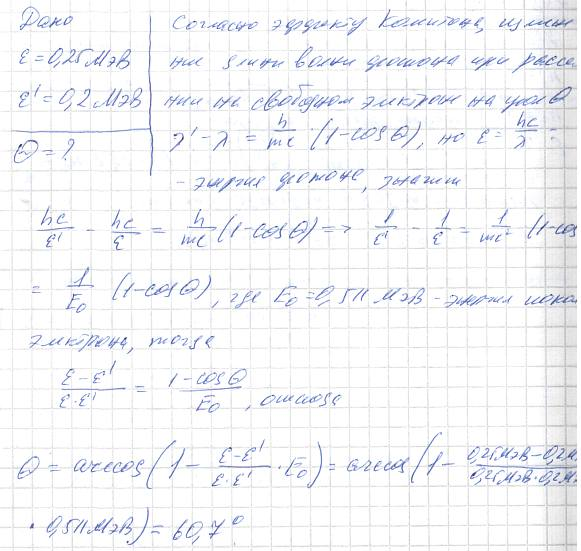 Дано
Согласно эффекту Комптона, измене
ε = 0,25 МэВ
ние длины волны фотона при рассея
ε' = 0,2 МэВ
нии на свободном электроне на угол θ
θ = ?
λ' - λ = h/mc · (1 - cos θ), но ε = hc/λ =
- энергия фотона, значит
hc/ε' - hc/ε = h/mc (1 - cos θ) => 1/ε' - 1/ε = 1/mc² (1 - cos
= 1/E₀ (1 - cos θ), где E₀ = 0,511 МэВ - энергия покоя
электрона, тогда
(ε - ε')/(ε · ε') = (1 - cos θ)/E₀, откуда
θ = arccos(1 - (ε - ε')/(ε · ε') · E₀) = arccos(1 - (0,25 МэВ - 0,2 М)/(0,25 МэВ · 0,2 М
· 0,511 МэВ) = 60,7°